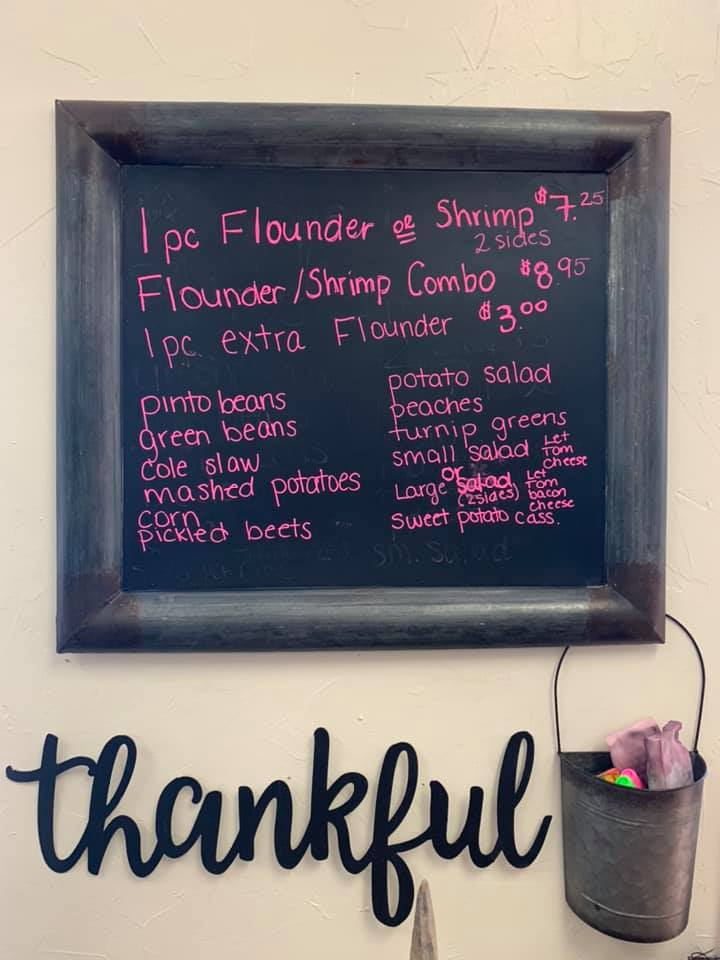 1 pc Flounder or Shrimp $7.25
2 sides
Flounder/Shrimp Combo $8.95
1 pc extra Flounder $3.00
pinto beans
green beans
cole slaw
mashed potatoes
corn
pickled beets
potato salad
peaches
turnip greens
small salad Let Tom cheese
or
Large salad (2 sides) Let Tom bacon cheese
sweet potato cass.
sm. salad
thankful